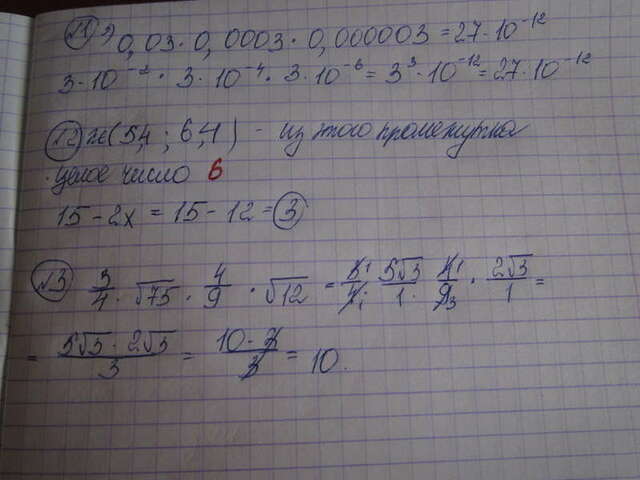 №1 э) 0,03 · 0,0003 · 0,000003 = 27 · 10⁻¹²
3 · 10⁻² · 3 · 10⁻⁴ · 3 · 10⁻⁶ = 3³ · 10⁻¹² = 27 · 10⁻¹²
№2 x (5,4 ; 6,4) - из этого промежутка
целое число 6
15 - 2x = 15 - 12 = 3
№3 3/4 · √75 · 4/9 · √12 = 3¹/4₁ · 5√3/1 · 4¹/9₃ · 2√3/1 =
= 5√3 · 2√3/3 = 10 · 3/3 = 10.